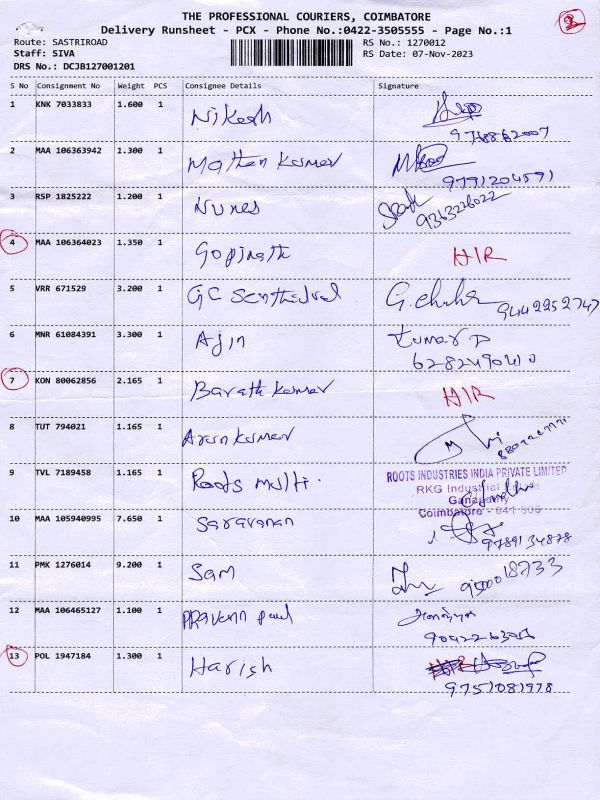 THE PROFESSIONAL COURIERS, COIMBATORE
Delivery Runsheet - PCX - Phone No.:0422-3505555 - Page No.:1
Route: SASTRIROAD RS No.: 1270012
Staff: SIVA RS Date: 07-Nov-2023
DRS No.: DCJB127001201
S No Consignment No Weight PCS Consignee Details Signature
1 KNK 7033833 1.600 1 Nikesh
2 MAA 106363942 1.300 1 Mathen Kumar
9791204591
3 RSP 1825222 1.200 1 Nunes
9363226022
4 MAA 106364023 1.350 1 Gopinath HIR
5 VRR 671529 3.200 1 GC Senthilvel 9442252747
6 MNR 61084391 3.300 1 Ajin Kumar P
7 KON 80062856 2.165 1 Barath Kumar HIR
8 TUT 794021 1.165 1 Arun Kumar
9 TVL 7189458 1.165 1 Roots multi. ROOTS INDUSTRIES INDIA PRIVATE LIMITED
RKG Industrial
Coimbatore - 641 006
10 MAA 105940995 7.650 1 Saravanan
9789134878
11 PMK 1276014 9.200 1 Sam 9500018733
12 MAA 106465127 1.100 1 Pravenn paul
13 POL 1947184 1.300 1 Harish
9751081978